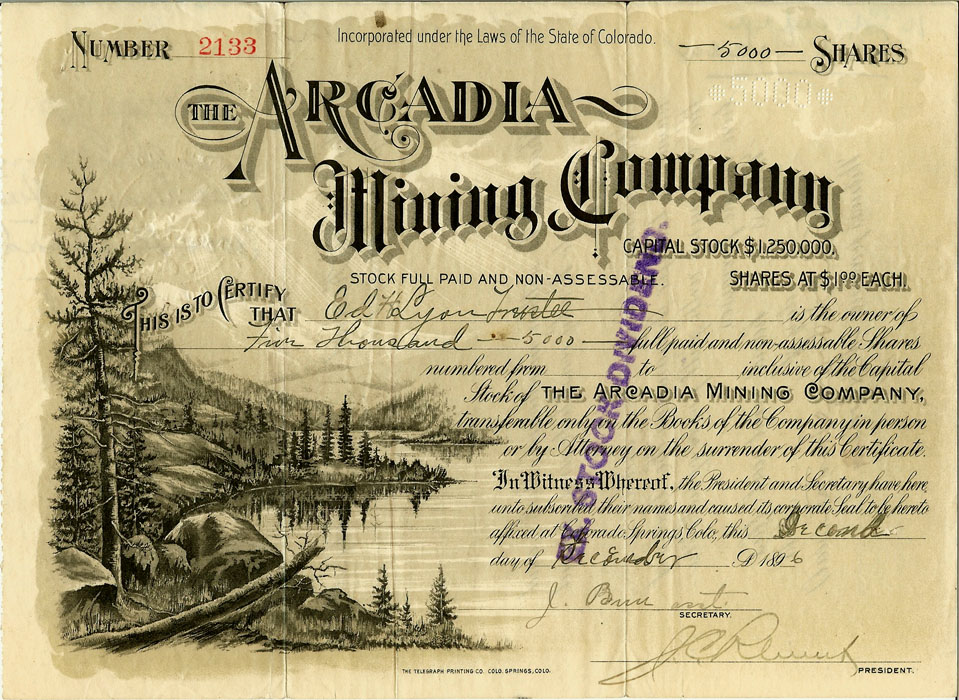 NUMBER 2133
Incorporated under the Laws of the State of Colorado.
—5000— SHARES
*5000*
THE ARCADIA
Mining Company
CAPITAL STOCK $1,250,000.
STOCK FULL PAID AND NON-ASSESSABLE.
SHARES AT $1.00 EACH.
THIS IS TO CERTIFY THAT Ed H Lyon Trustee is the owner of
Five Thousand —5000— full paid and non-assessable Shares
numbered from to inclusive of the Capital
Stock of THE ARCADIA MINING COMPANY,
transferable only on the Books of the Company in person
or by Attorney on the surrender of this Certificate.
In Witness Whereof, the President and Secretary have here
unto subscribed their names and caused its corporate Seal to be hereto
affixed at Colorado Springs Colo, this Second
day of December A.D. 1896
J.
SECRETARY.
PRESIDENT.
EX. STOCK DIVIDEND.
THE TELEGRAPH PRINTING CO. COLO. SPRINGS, COLO.